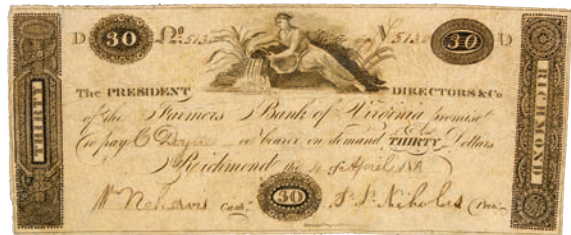 D 30 No 30 D
THIRTY
RICHMOND
The PRESIDENT DIRECTORS & Co
of the Farmers Bank of Virginia promise
to pay or bearer on demand THIRTY Dollars
Richmond the 4 of April
Wm Nekervis Cashr. 30 P. N. Nicholas Presi